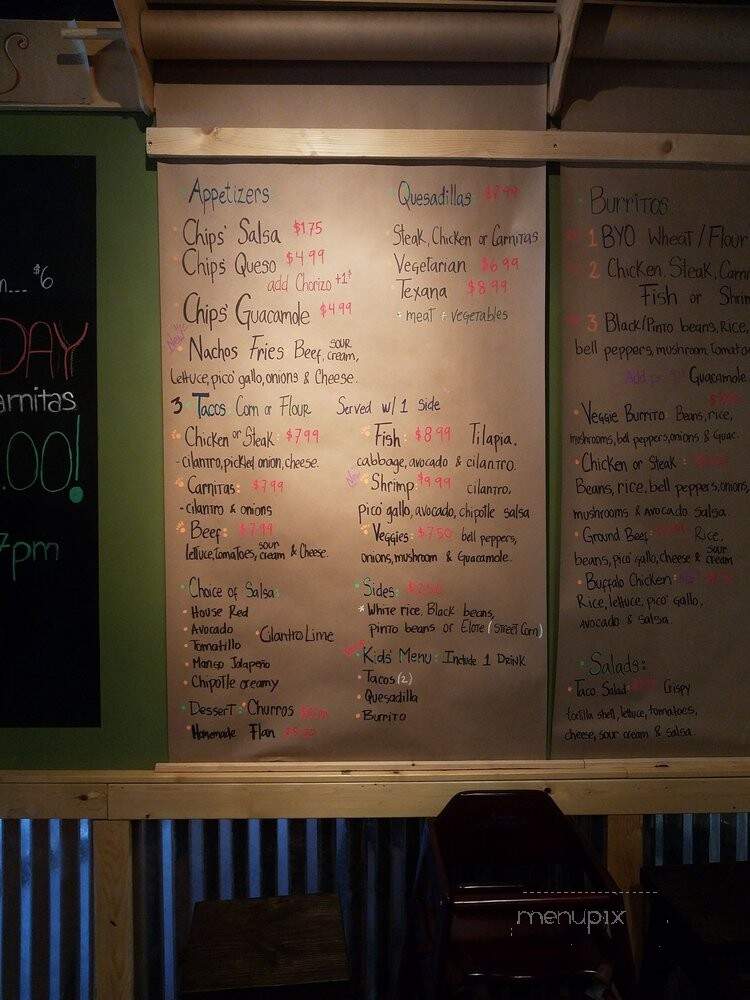 m... $6
DAY
arnitas
.00!
7pm
Appetizers
Chips' Salsa $1.75
Chips' Queso $4.99
add Chorizo +1.
Chips' Guacamole $4.99
New
Nachos Fries Beef, sour cream,
lettuce, pico' gallo, onions & Cheese.
Quesadillas $8.99
Steak, Chicken or Carnitas
Vegetarian $6.99
Texana $8.99
meat & vegetables
3 Tacos Corn or Flour Served w/ 1 side
Chicken or Steak: $7.99
- cilantro, pickled onion, cheese.
Carnitas: $7.99
- cilantro & onions
Beef: $7.99
lettuce, Tomatoes, sour cream & Cheese.
Fish: $8.99 Tilapia,
cabbage, avocado & cilantro.
Shrimp $9.99 cilantro,
pico' gallo, avocado, chipotle salsa
Veggies: $7.50 bell peppers,
onions, mushroom & Guacamole.
Choice of Salsa:
House Red
Avocado
Cilantro Lime
Tomatillo
Mango Jalapeño
Chipotle creamy
Dessert: Churros
Homemade Flan
Sides:
* White rice, Black beans,
pinto beans or Elote (Street Corn)
Kids' Menu: Include 1 Drink
Tacos (2)
Quesadilla
Burrito
Burritos
1 BYO Wheat / Flour
2 Chicken, Steak, Carn
Fish or Shrim
3 Black/Pinto beans, Rice,
bell peppers, mushroom, tomato
Guacamole
Veggie Burrito Beans, rice,
mushrooms, bell peppers, onions & Guac.
Chicken or Steak
Beans, rice, bell peppers, onions,
mushrooms & avocado salsa
Ground Beef Rice,
beans, pico' gallo, cheese & sour cream
Buffalo Chicken
Rice, lettuce, pico' gallo,
avocado & salsa.
Salads:
Taco Salad Crispy
tortilla shell, lettuce, tomatoes,
cheese, sour cream & salsa.
menupix